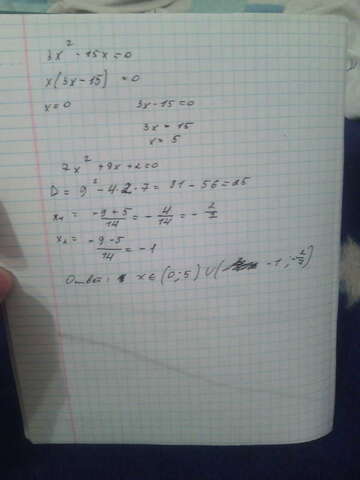 3x² - 15x = 0
x(3x-15) = 0
x = 0 3x-15=0
3x = 15
x = 5
7x² + 9x + 2 = 0
D = 9² - 4·2·7 = 81 - 56 = 25
x₁ = -9+5/14 = -4/14 = -2/7
x₂ = -9-5/14 = -1
Ответ: x ∈ (0;5) ∪ ( -1; -2/7)